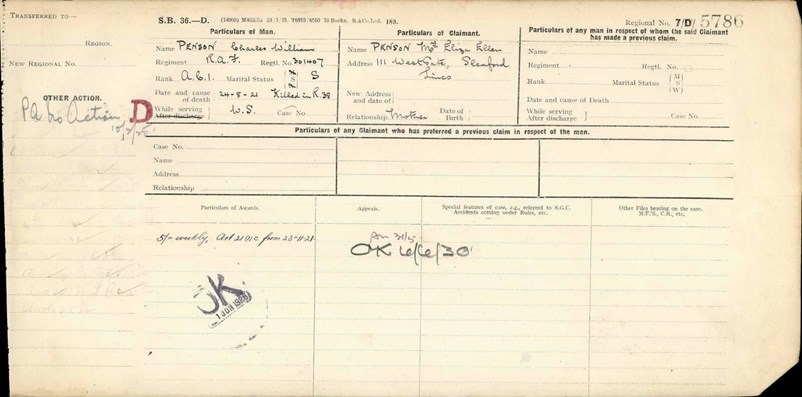 TRANSFERRED TO:—
REGION.
NEW REGIONAL No.
OTHER ACTION.
PA No Action
D
S.B. 36.—D.
Regional No. 7/D/ 5786
Particulars of Man.
Name PENSON Charles William
Regiment R.A.F. Regtl. No. 301407
Rank A.C.1. Marital Status S
Date and cause of death 24-8-21 Killed in R.38
While serving W.S. Case No.
After discharge
Particulars of Claimant.
Name PENSON Mrs Eliza Ellen
Address 111 West Gate, Sleaford
Lincs
New Address and date of
Relationship Mother Date of Birth
Particulars of any man in respect of whom the said Claimant has made a previous claim.
Name
Regiment Regtl. No.
Rank Marital Status (M) (S) (W)
Date and Cause of Death
While serving
After discharge Case No.
Particulars of any Claimant who has preferred a previous claim in respect of the man.
Case No.
Name
Address
Relationship
Particulars of Awards.
Appeals.
Special features of case, e.g., referred to S.G.C.
Accidents coming under Rules, etc.
Other Files bearing on the case.
M.P.'s, C.R., etc.
5/- weekly, Art 21 from 23-11-21
OK 6/6/30
OK